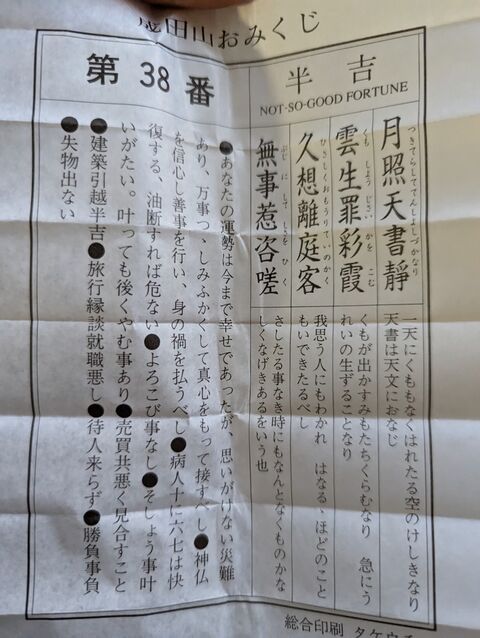 田山おみくじ
半吉
NOT-SO-GOOD FORTUNE
第38番
月照天書靜
つきてらしててんしよしづかなり
一天にくももなくはれたる空のけしきなり
天書は天文におなじ
雲生罪彩霞
くも しよう じさい かを こむ
くもが出かすみもたちくらむなり　急にう
れいの生ずることなり
久想離庭客
ひさしくおもうりていのかく
我思う人にもわかれ　はなるゝほどのこと
もいできたるべし
無事惹咨嗟
ぶじ にして しさを ひく
さしたる事なき時にもなんとなくものかな
しくなげきあるをいう也
●あなたの運勢は今まで幸せであったが、思いがけない災難
あり、万事つゝしみふかくして真心をもって接すべし●神仏
を信心し善事を行い、身の禍を払うべし●病人十に六七は快
復する、油断すれば危ない●よろこび事なし●そしょう事叶
いがたい。叶っても後くやむ事あり●売買共悪く見合すこと
●建築引越半吉●旅行縁談就職悪し●待人来らず●勝負事負
●失物出ない
総合印刷 タケウ